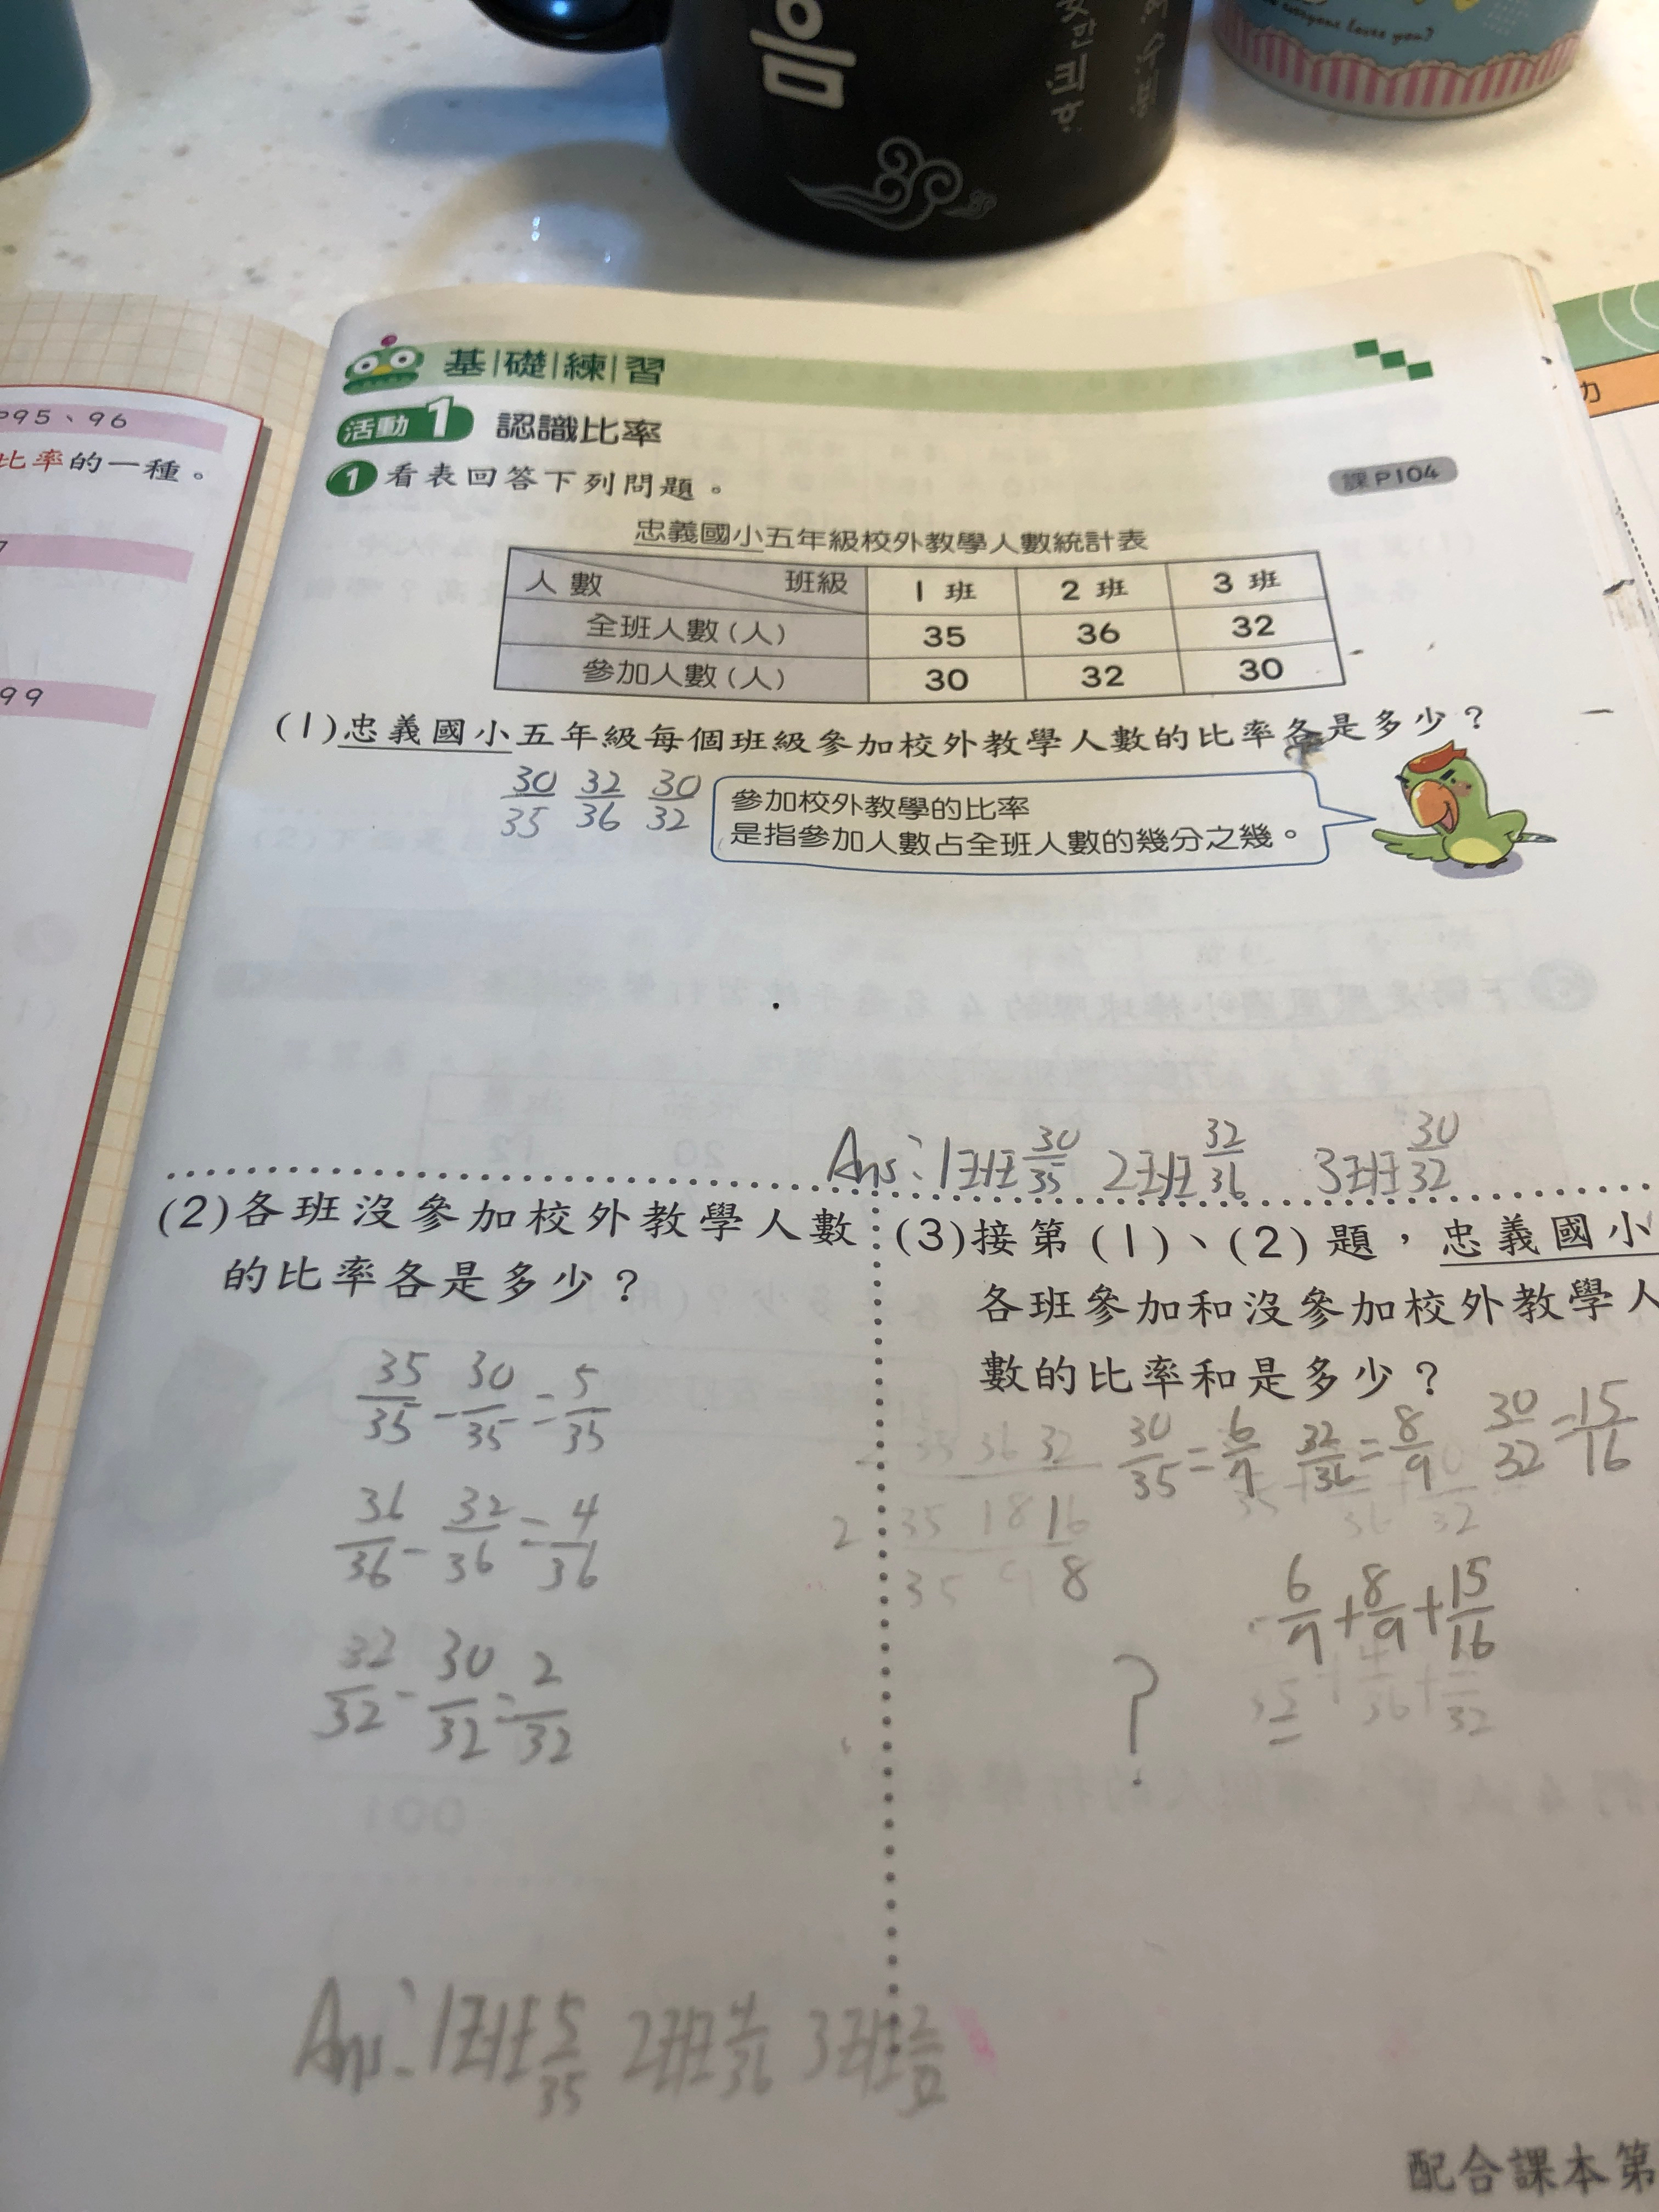 음
everyone loves you?
P95、96
比率的一種。
99
基礎練習
活動1 認識比率
1 看表回答下列問題。
課P104
忠義國小五年級校外教學人數統計表
人數 班級 1班 2班 3班
全班人數(人) 35 36 32
參加人數(人) 30 32 30
(1)忠義國小五年級每個班級參加校外教學人數的比率各是多少?
30/35 32/36 30/32
參加校外教學的比率
是指參加人數占全班人數的幾分之幾。
Ans:1班30/35 2班32/36 3班30/32
(2)各班沒參加校外教學人數
的比率各是多少?
35/35-30/35=5/35
36/36-32/36=4/36
32/32-30/32=2/32
Ans:1班5/35 2班4/36 3班2/32
(3)接第(1)、(2)題,忠義國小
各班參加和沒參加校外教學人
數的比率和是多少?
30/35=6/7 32/36=8/9 30/32=15/16
35 36 32
2 35 18 16
35 9 8
6/7+8/9+15/16
?
配合課本第